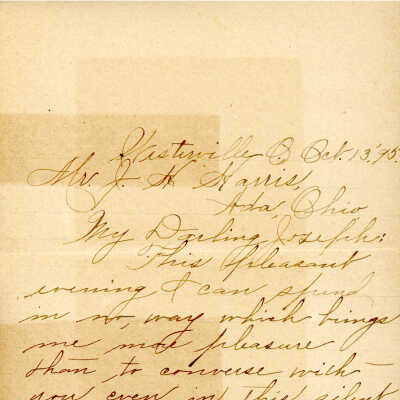 Westerville O. Oct. 13, '95.
Mr. J. H. Harris,
Ada, Ohio
My Darling Joseph:
This pleasant
evening I can spend
in no, way which brings
me more pleasure
than to converse with
you even in this silent